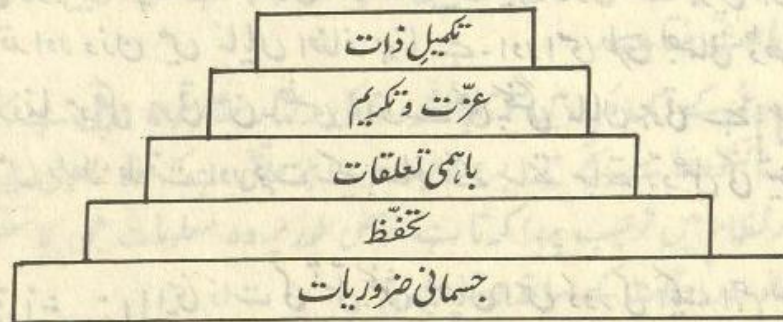 تکمیلِ ذات
عزّت و تکریم
باہمی تعلقات
تحفّظ
جسمانی ضروریات